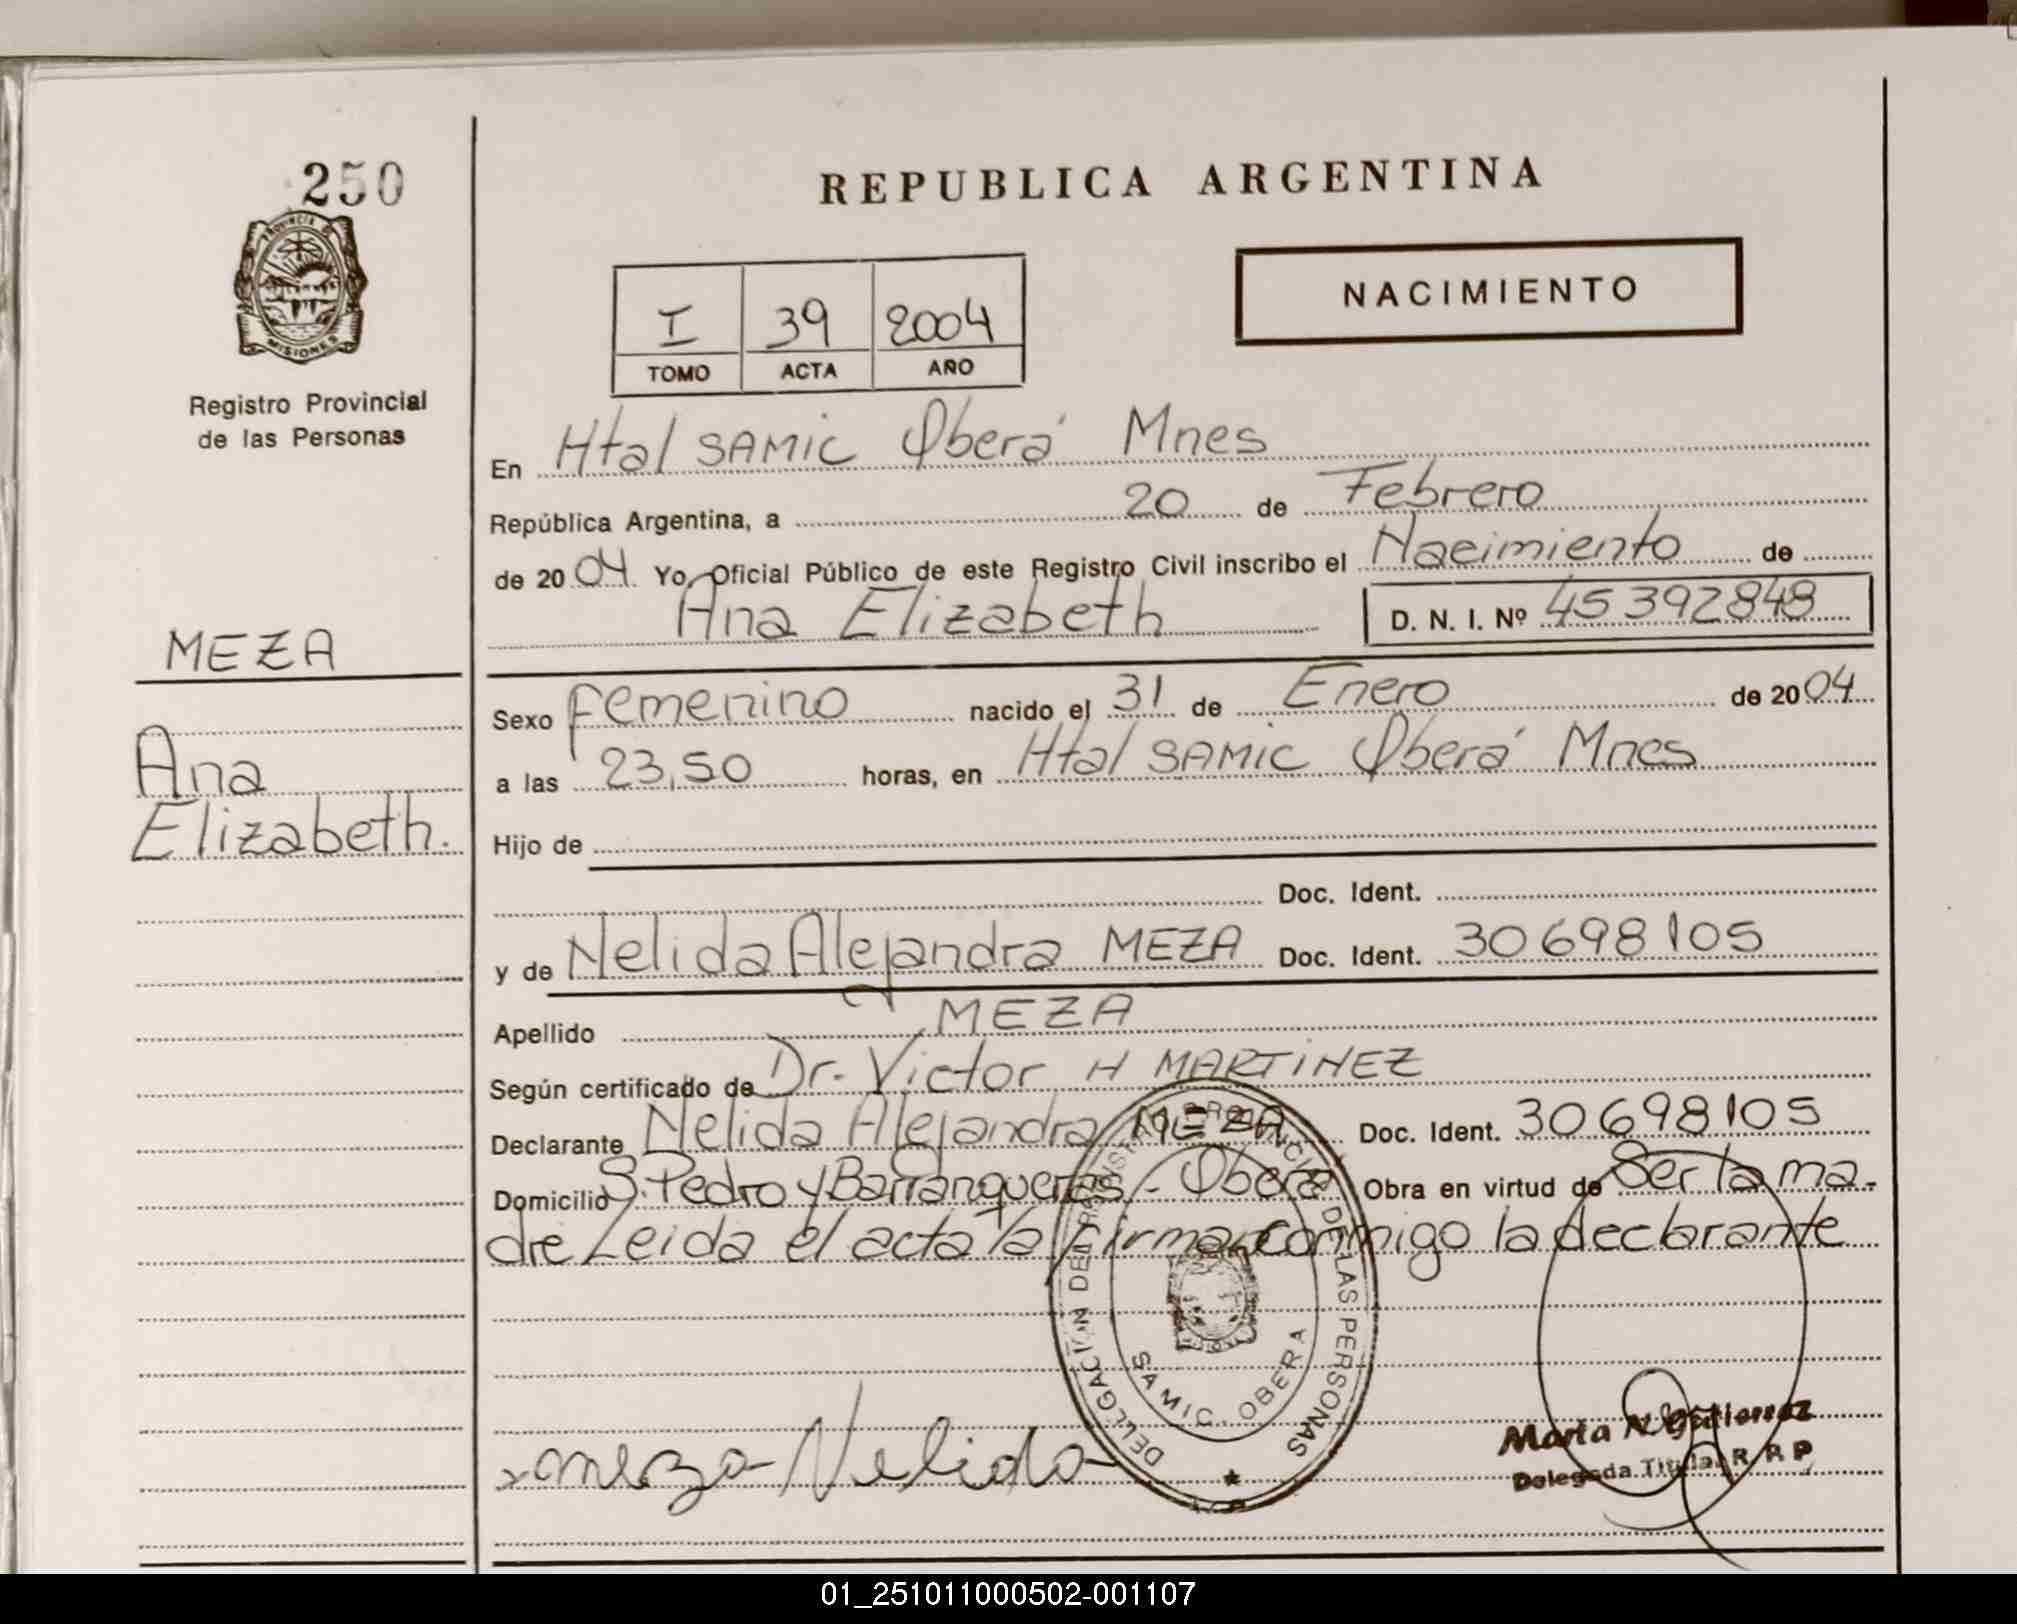 250
PROVINCIA DE
MISIONES
Registro Provincial
de las Personas
MEZA
Ana
Elizabeth.
REPUBLICA ARGENTINA
NACIMIENTO
I 39 2004
TOMO ACTA AÑO
En Htal SAMIC Oberá Mnes
República Argentina, a 20 de Febrero
de 2004 Yo, Oficial Público de este Registro Civil inscribo el Nacimiento de
Ana Elizabeth D. N. I. Nº 45392848
Sexo Femenino nacido el 31 de Enero de 2004
a las 23,50 horas, en Htal SAMIC Oberá Mnes
Hijo de
Doc. Ident.
y de Nelida Alejandra MEZA Doc. Ident. 30698105
Apellido MEZA
Según certificado de Dr. Victor H MARTINEZ
Declarante Nelida Alejandra MEZA Doc. Ident. 30698105
Domicilio S. Pedro y Barranqueras - Oberá Obra en virtud de Ser la ma-
dre Leida el acta la firma conmigo la declarante
DELEGACION DEL REGISTRO PROVINCIAL DE LAS PERSONAS
SAMIC. OBERA
meza Nelida
Marta N. Gutierrez
Delegada Titular R. R P
01_251011000502-001107